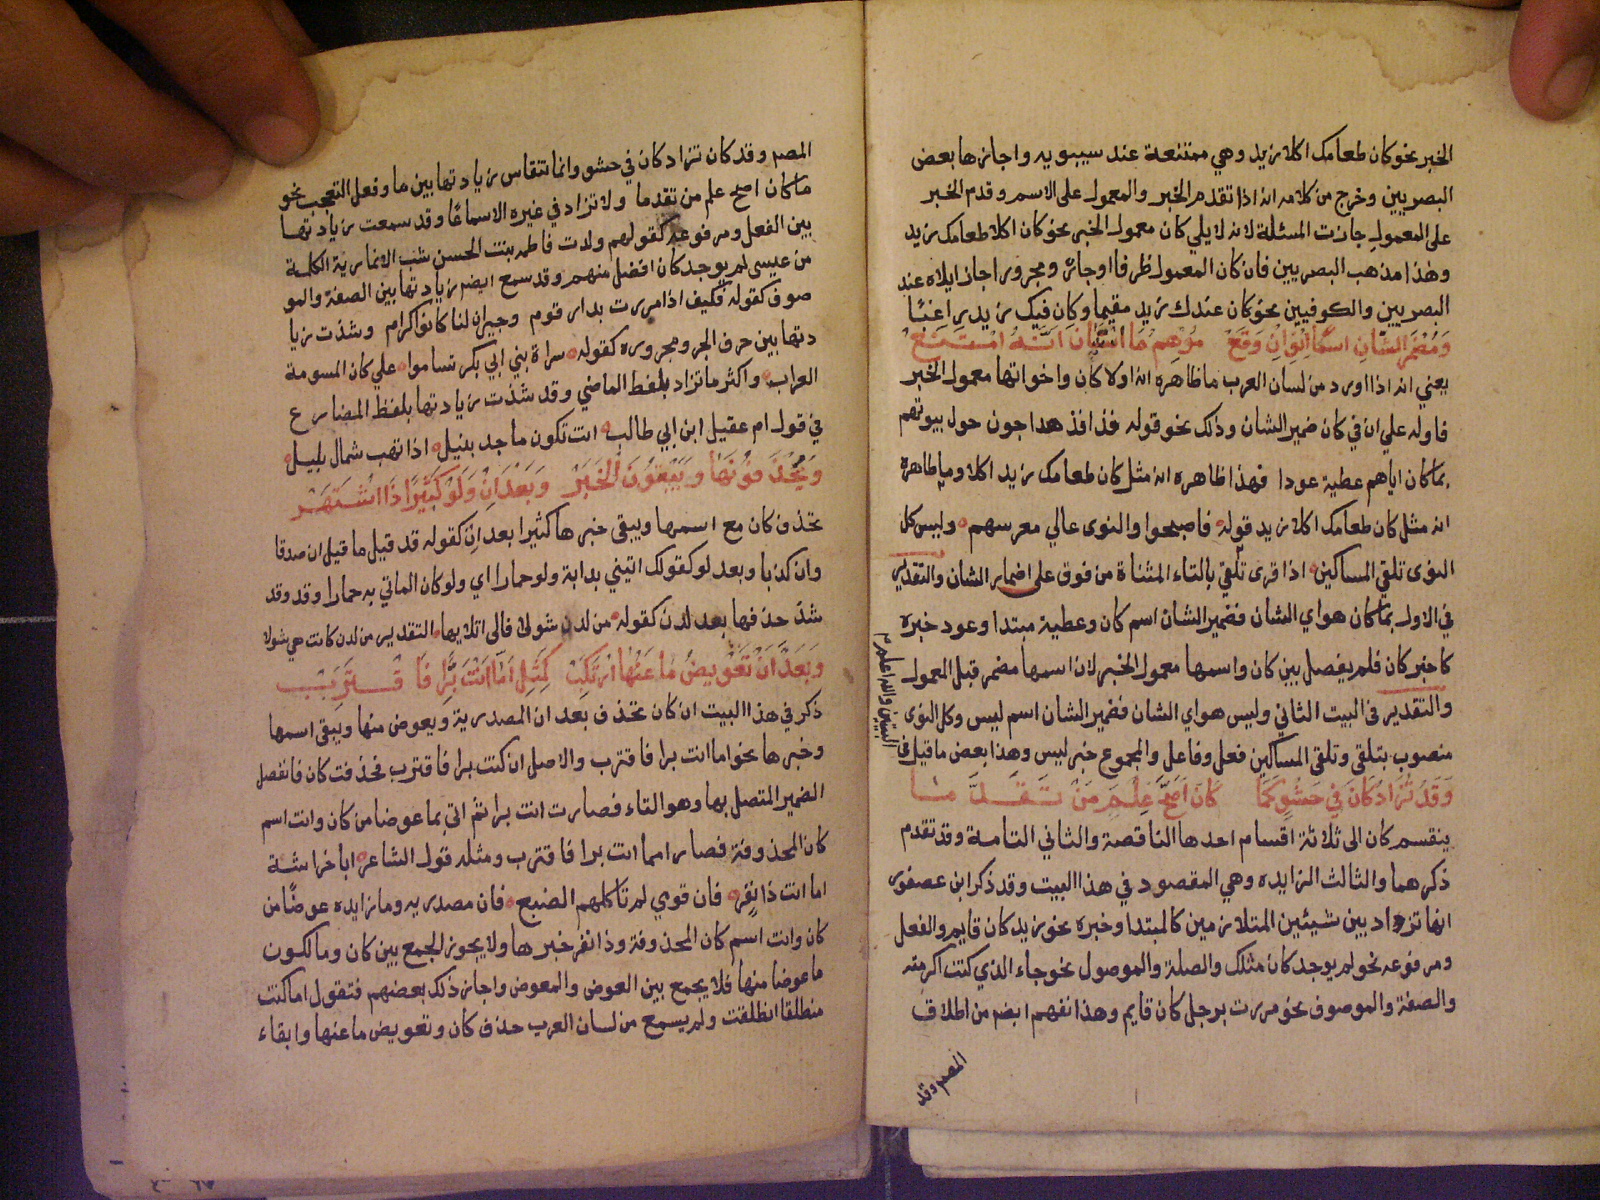 الخبر نحو كان طعامك اكلا زيد وهي ممتنعة عند سيبويه واجازها بعض
البصريين وخرج من كلامه انه اذا تقدم الخبر والمعمول على الاسم وقدم الخبر
على المعمول جازت المسئلة لانه لا يلي كان معمول الخبر نحو كان اكلا طعامك زيد
وهذا مذهب البصريين فان كان المعمول ظرفا او جارّ ومجرور اجاز ايلاه عند
البصريين والكوفيين نحو كان عندك زيد مقيما وكان فيك زيد راغبًا
وَمُضْمَرُ الشَّانِ اسْمًا انْوِ انْ وَقَعْ مُوْهِمُ مَا اسْتَبَانَ اَنَّهُ امْتَنَعْ
يعني انه اذا ورد من لسان العرب ما ظاهره انه اولا كان واخواتها معمول الخبر
فاوله على ان في كان ضمير الشان وذلك نحو قوله قنافذ هداجون حول بيوتهم
بما كان اياهم عطية عودا فهذا ظاهره انه مثل كان طعامك زيد اكلا ومما ظاهره
انه مثل كان طعامك اكلا زيد قوله فاصبحوا والنوى عالي معرسهم وليس كل
النوى تلقي المساكين اذا قرى تلقي بالتاء المثناة من فوق على اضمار الشان والتقدير
في الاول بما كان هو اي الشان فضمير الشان اسم كان وعطية مبتدا وعود خبره
كا خبر كان فلم يفصل بين كان واسمها معمول الخبر لان اسمها مضمر قبل المعمول
والتقدير في البيت الثاني وليس هو اي الشان فضمير الشان اسم ليس وكل النوى
منصوب بتلقي وتلقي المساكين فعل وفاعل والمجموع خبر ليس وهذا بعض ما قيل في
البيتين والله اعلم
وَقَدْ تُزَادُ كَانَ فِي حَشْوٍ كَمَا كَانَ اَصَحَّ عِلْمَ مَنْ تَقَدَّمَا
ينقسم كان الى ثلاثة اقسام احدها الناقصة والثاني التامة وقد تقدم
ذكرهما والثالث الزايده وهي المقصود في هذا البيت وقد ذكر ابن عصفور
انها تزاد بين شيئين المتلازمين كالمبتدا وخبره نحو زيد كان قايم والفعل
ومرفوعه نحو لم يوجد كان مثلك والصلة والموصول نحو جاء الذي كنت اكرمته
والصفة والموصوف نحو مررت برجل كان قايم وهذا تفهم ايضم من اطلاق
المصم وقد
المصم وقد كان تزاد كان في حشو وانما تنقاس زيادتها بين ما وفعل التعجب نحو
ما كان اصح علم من تقدما ولا تزاد في غيره الا سماعًا وقد سمعت زيادتها
بين الفعل ومرفوعه كقولهم ولدت فاطمه بنت الحسن شب الانمارية الكلة
من عيسى لم يوجد كان افضل منهم وقد سمع ايضم زيادتها بين الصفة والمو
صوف كقوله فكيف اذا مررت بدار قوم وجيران لنا كانوا كرام وشذت زيا
دتها بين حرف الجر ومجروره كقوله سراة بني ابي بكر تساموا على كان المسومة
العراب واكثر ما تزاد بلفظ الماضي وقد شذت زيادتها بلفظ المضارع
في قول ام عقيل ابن ابي طالب انت تكون ماجد بنيل اذا تهب شمال بليل
وَيَحْذِفُوْنَهَا وَيُبْقُوْنَ الْخَبَرْ وَبَعْدَ اِنْ وَلَوْ كَثِيْرًا ذَا اشْتَهَرْ
تحذف كان مع اسمها ويبقى خبرها كثيرا بعد ان كقوله قد قيل ما قيل ان صدقا
وان كذبا وبعد لو كقولك اتيني بدابة ولو حمارا اي ولو كان الماتي به حمارا وقد وقد
شذ حذفها بعد لدن كقوله من لدن شولا فالى اتلايها التقدير من لدن كانت هي شولا
وَبَعْدَ اَنْ تَعْوِيْضُ مَا عَنْهَا ارْتُكِبْ كَمِثْلِ اَمَّا اَنْتَ بَرًّا فَاقْتَرِبْ
ذكر في هذا البيت ان كان تحذف بعد ان المصدرية ويعوض منها ويبقى اسمها
وخبرها نحو اما انت برا فاقترب والاصل ان كنت برا فاقترب فحذفت كان فانفصل
الضمير المتصل بها وهو التاء فصارت انت برا ثم اتى بما عوضا من كان وانت اسم
كان المحذوفة فصار اما انت برا فاقترب ومثله قول الشاعر ابا خراشة
اما انت ذا نفر فان قوي لم تاكلهم الضبع فان مصدريه وما زايده عوضًا من
كان وانت اسم كان المحذوفة وذا نفر خبرها ولا يجوز الجمع بين كان وما لكون
ما عوضا منها فلا يجمع بين العوض والمعوض واجاز ذلك بعضهم فتقول اما كنت
منطلقا انطلقت ولم يسمع من لسان العرب حذف كان وتعويض ما عنها وابقاء